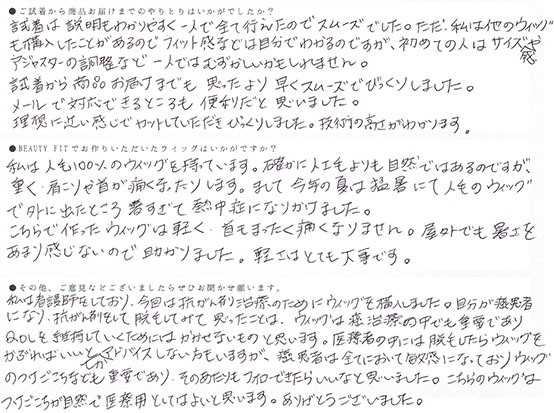 ●ご試着から商品お届けまでのやりとりはいかがでしたか?
試着は説明もわかりやすく一人で全て行えたのでスムーズでした。ただ、私は他のウィッグ
も購入したことがあるのでフィット感などは自分でわかるのですが、初めての人はサイズ感や
アジャスターの調整など一人ではむずかしいかもしれません。
試着から商品お届けまでも思ったより早くスムーズでびっくりしました。
メールで対応できるところも便利だと思いました。
理想に近い感じでカットしていただきびっくりしました。技術の高さがわかります。
●BEAUTY FITでお作りいただいたウィッグはいかがですか?
私は人毛100%のウィッグを持っています。確かに人工毛よりも自然ではあるのですが、
重く・肩こりや首が痛くなったりします。まして今年の夏は猛暑にて人毛のウィッグ
で外に出たところ暑すぎて熱中症になりかけました。
こちらで作ったウィッグは軽く・首もまったく痛くなりません。屋外でも暑さを
あまり感じないので助かりました。軽さはとても大事です。
●その他、ご意見などございましたらぜひお聞かせ願います。
私は看護師をしており、今回は抗がん剤治療のためにウィッグを購入しました。自分が癌患者
になり、抗がん剤をして脱毛してみて思ったことは、ウィッグは癌治療の中でも重要であり
QOLを維持していくためにはかかせないものと思います。医療者の中には脱毛したらウィッグを
かぶればいいとしかアドバイスしない方もいますが、癌患者は全てにおいて敏感になっておりウィッグ
のつけごこちなども重要であり、そのあたりもフォローできたらいいなと思いました。こちらのウィッグは
つけごこちが自然で医療用としてはよいと思います。ありがとうございました。